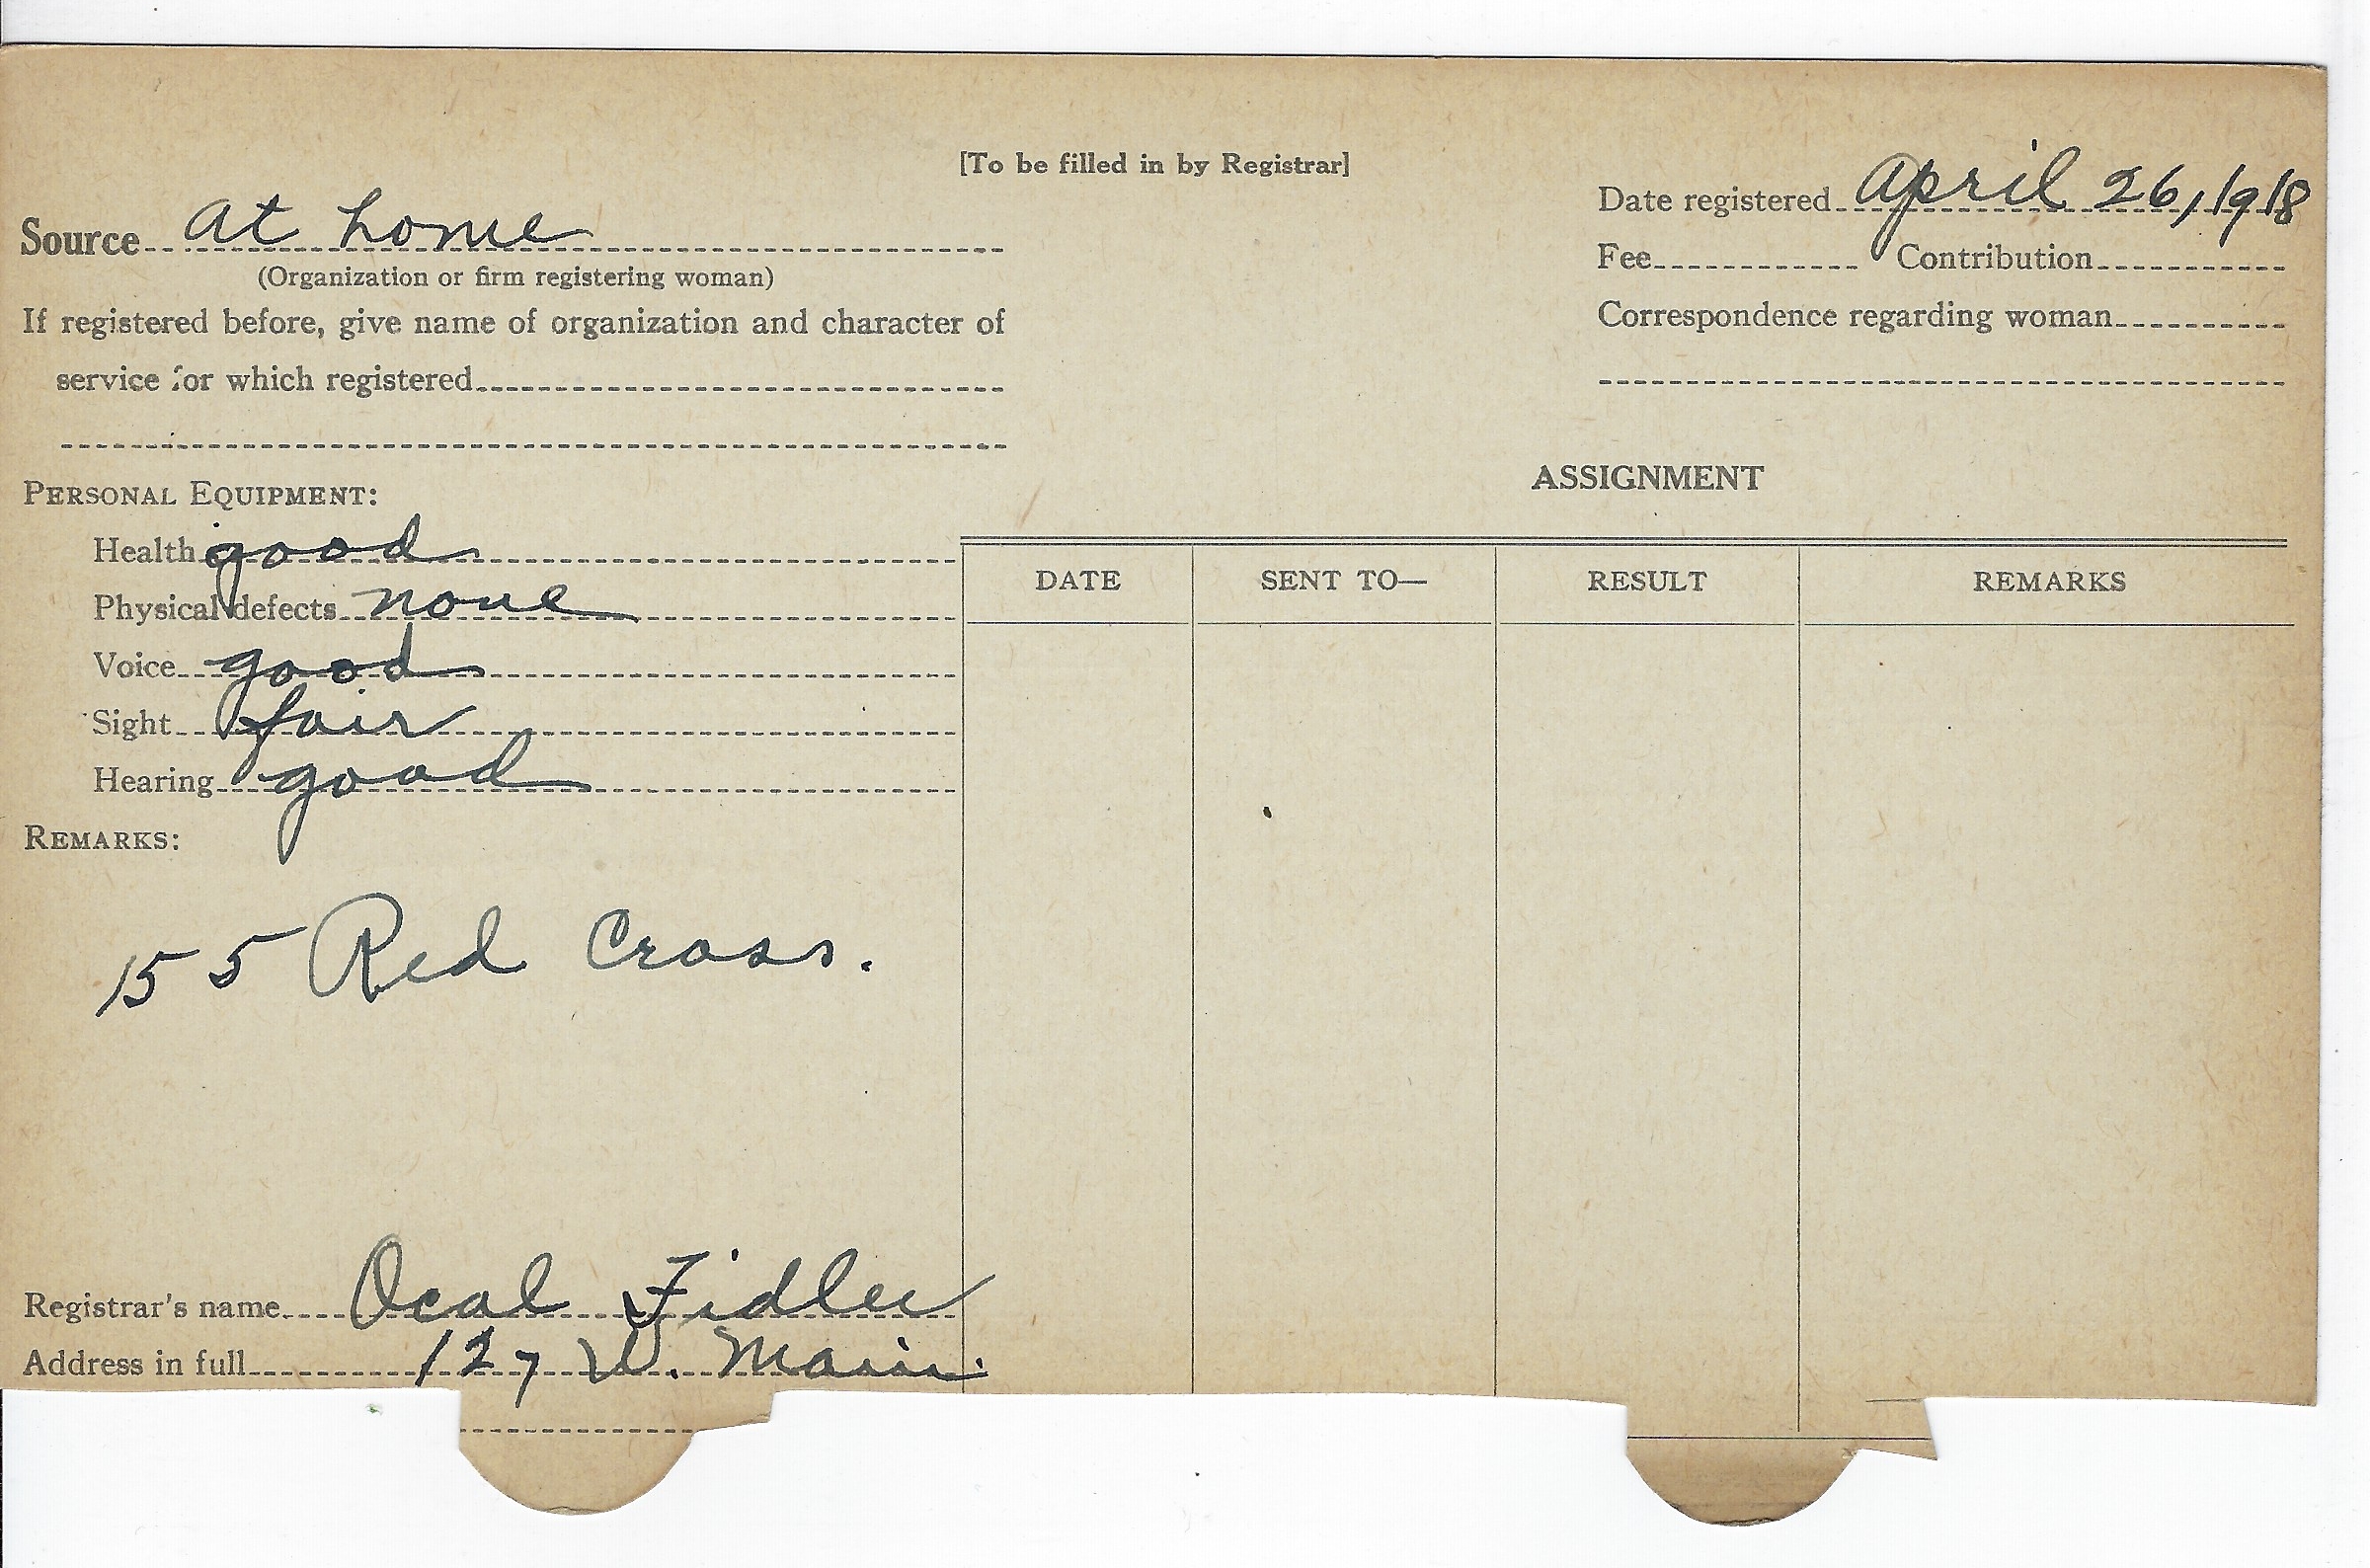 [To be filled in by Registrar]
Source at home
(Organization or firm registering woman)
If registered before, give name of organization and character of
service for which registered
Date registered April 26, 1918
Fee Contribution
Correspondence regarding woman
PERSONAL EQUIPMENT:
Health good
Physical defects none
Voice good
Sight fair
Hearing good
REMARKS:
155 Red Cross.
Registrar's name Ocal Fidler
Address in full 127 W. Main.
ASSIGNMENT
DATE SENT TO— RESULT REMARKS